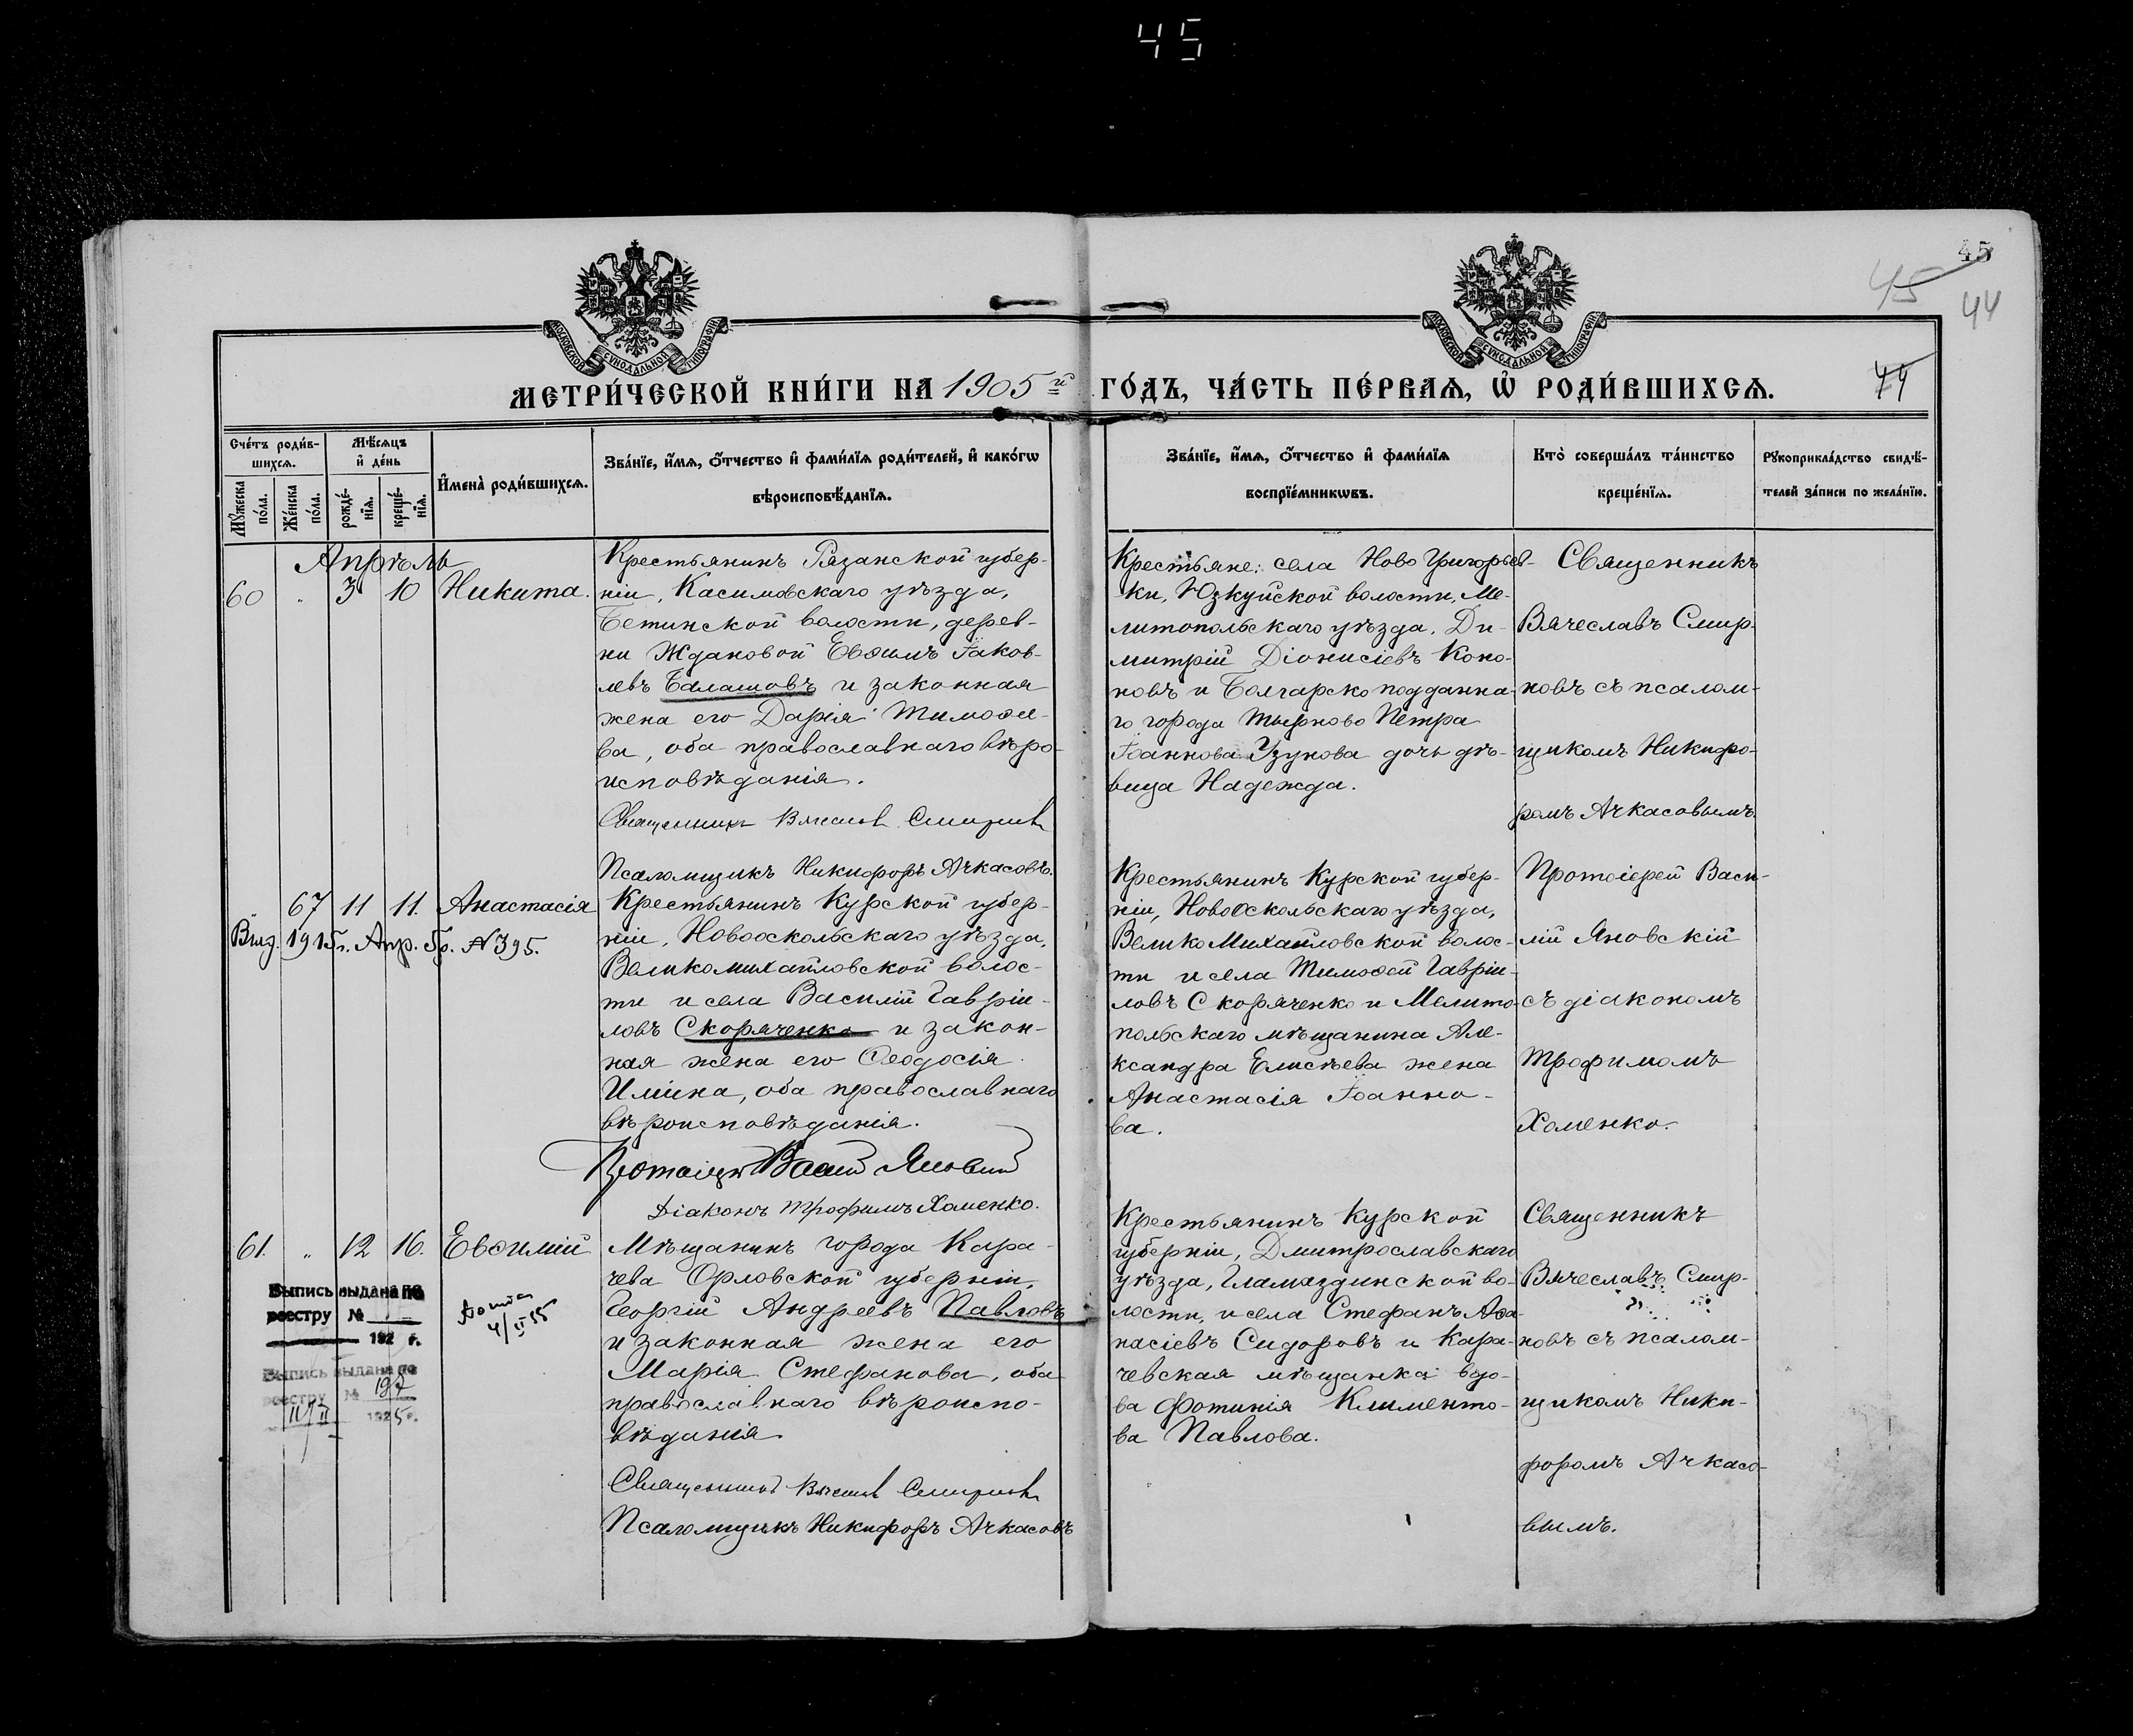 45
45
45
44
44
МЕТРИ́ЧЕСКОЙ КНИ́ГИ НА 1905й ГО́ДЪ, ЧА́СТЬ ПЕ́РВАѦ, Ѡ҆ РОДИ́ВШИХСѦ.
Сче́тъ роди́в-
шихсѧ.
Мꙋ́жеска по́ла.
Же́нска по́ла.
Мѣ́сѧцъ
и҆ де́нь
рожде́-
нїѧ.
креще́-
нїѧ.
И҆мена̀ роди́вшихсѧ.
Зва́нїе, и҆́мѧ, ѻ҆́тчество и҆ фами́лїѧ роди́телей, и҆ како́гѡ
вѣроисповѣ́данїѧ.
Зва́нїе, и҆́мѧ, ѻ҆́тчество и҆ фами́лїѧ
воспрїе́мникѡвъ.
Кто̀ соверша́лъ та́инство
креще́нїѧ.
Рꙋкоприкла́дство свидѣ́-
телей за́писи по жела́нїю.
Апрѣль
60 " 3 10 Никита.
Крестьянинъ Рязанской губер-
ніи, Касимовскаго уѣзда,
Бетинской волости, дерев-
ни Ждановой Евѳимъ Іаков-
левъ Балашовъ и законная
жена его Дарія Тимоѳе-
ва, оба православнаго вѣро-
исповѣданія.
Священникъ Вячеслав Смирновъ
Псаломщикъ Никифоръ Ачкасовъ.
Крестьяне: села Ново Григорьев-
ки, Юзкуйской волости, Ме-
литопольскаго уѣзда, Ди-
митрій Діонисіевъ Коно-
новъ и Болгарско подданна-
го города Тырново Петра
Іоаннова Узунова дочь дѣ-
вица Надежда.
Священникъ
Вячеславъ Смир-
новъ съ псалом-
щикомъ Никифо-
ромъ Ачкасовымъ.
" 67 11 11. Анастасія
Выд. 1915г. Апр. 5д. №395.
Крестьянинъ Курской губер-
ніи, Новооскольскаго уѣзда,
Великомихайловской волос-
ти и села Василій Гавріи-
ловъ Скоряченко и закон-
ная жена его Ѳеодосія
Иліина, оба православнаго
вѣроисповѣданія.
Протоіерей Василій Яновский
Діаконъ Трофимъ Хоменко.
Крестьянинъ Курской губер-
ніи, Новооскольскаго уѣзда,
Велико Михайловской волос-
ти и села Тимоѳей Гавріи-
ловъ Скоряченко и Мелито-
польскаго мѣщанина Але-
ксандра Елисѣева жена
Анастасія Іоанно-
ва.
Протоіерей Васи-
лій Яновскій
съ діакономъ
Трофимомъ
Хоменко.
61. " 12 16. Евѳимій
Выпись выдана по
реестру №
192 г.
Выпись выдана по
реестру № 197
11/II 1925 г.
4/II 55
Мѣщанинъ города Кара-
чева Орловской губерніи,
Георгій Андреевъ Павловъ
и законная жена его
Марія Стефанова, оба
православнаго вѣроиспо-
вѣданія.
Священникъ Вячеслав Смирновъ
Псаломщикъ Никифоръ Ачкасовъ
Крестьянинъ Курской
губерніи, Дмитрославскаго
уѣзда, Гламаздинской во-
лости, и села Стефанъ Аѳа-
насіевъ Сидоровъ и Кара-
чевская мѣщанка вдо-
ва Фотинія Клименто-
ва Павлова.
Священникъ
Вячеславъ Смир-
новъ съ псалом-
щикомъ Ники-
форомъ Ачкасо-
вымъ.